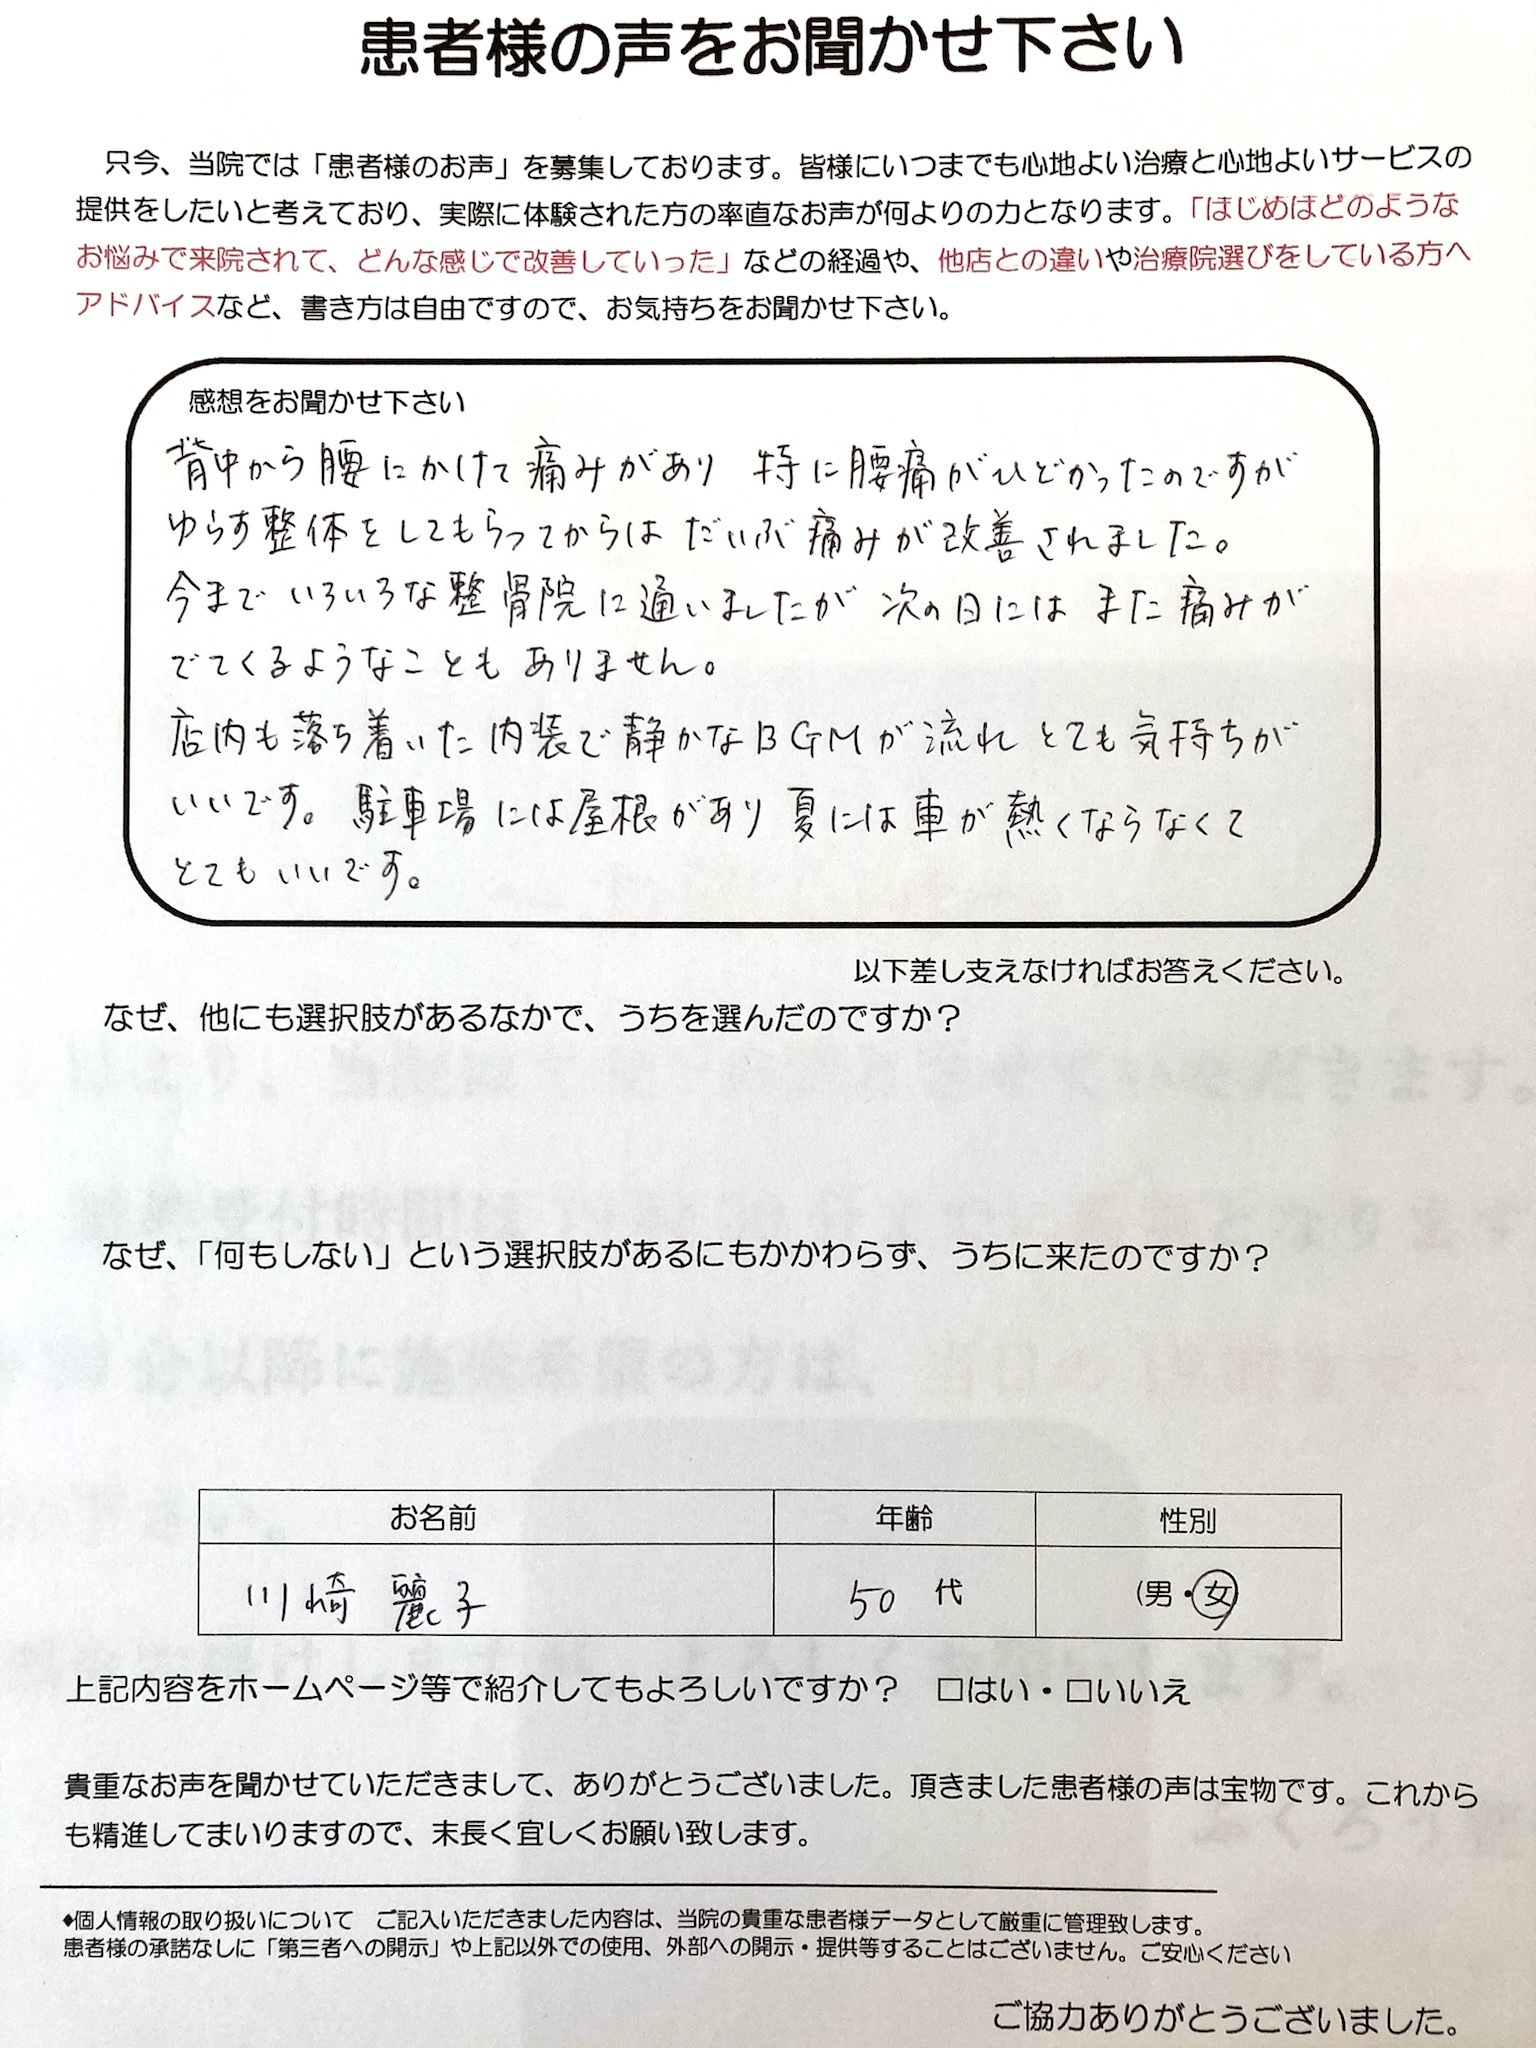 患者様の声をお聞かせ下さい
只今、当院では「患者様のお声」を募集しております。皆様にいつまでも心地よい治療と心地よいサービスの
提供をしたいと考えており、実際に体験された方の率直なお声が何よりの力となります。「はじめはどのような
お悩みで来院されて、どんな感じで改善していった」などの経過や、他店との違いや治療院選びをしている方へ
アドバイスなど、書き方は自由ですので、お気持ちをお聞かせ下さい。
感想をお聞かせ下さい
背中から腰にかけて痛みがあり 特に腰痛がひどかったのですが
ゆらす整体をしてもらってからは だいぶ痛みが改善されました。
今まで いろいろな整骨院に通いましたが 次の日には また痛みが
でてくるようなことも ありません。
店内も落ち着いた内装で静かなBGMが流れ とても気持ちが
いいです。駐車場には屋根があり 夏には車が熱くならなくて
とてもいいです。
以下差し支えなければお答えください。
なぜ、他にも選択肢があるなかで、うちを選んだのですか？
なぜ、「何もしない」という選択肢があるにもかかわらず、うちに来たのですか？
お名前 年齢 性別
川崎 麗子 50 代 (男・女)
上記内容をホームページ等で紹介してもよろしいですか？ □はい・□いいえ
貴重なお声を聞かせていただきまして、ありがとうございました。頂きました患者様の声は宝物です。これから
も精進してまいりますので、末長く宜しくお願い致します。
◆個人情報の取り扱いについて ご記入いただきました内容は、当院の貴重な患者様データとして厳重に管理致します。
患者様の承諾なしに「第三者への開示」や上記以外での使用、外部への開示・提供等することはございません。ご安心ください
ご協力ありがとうございました。